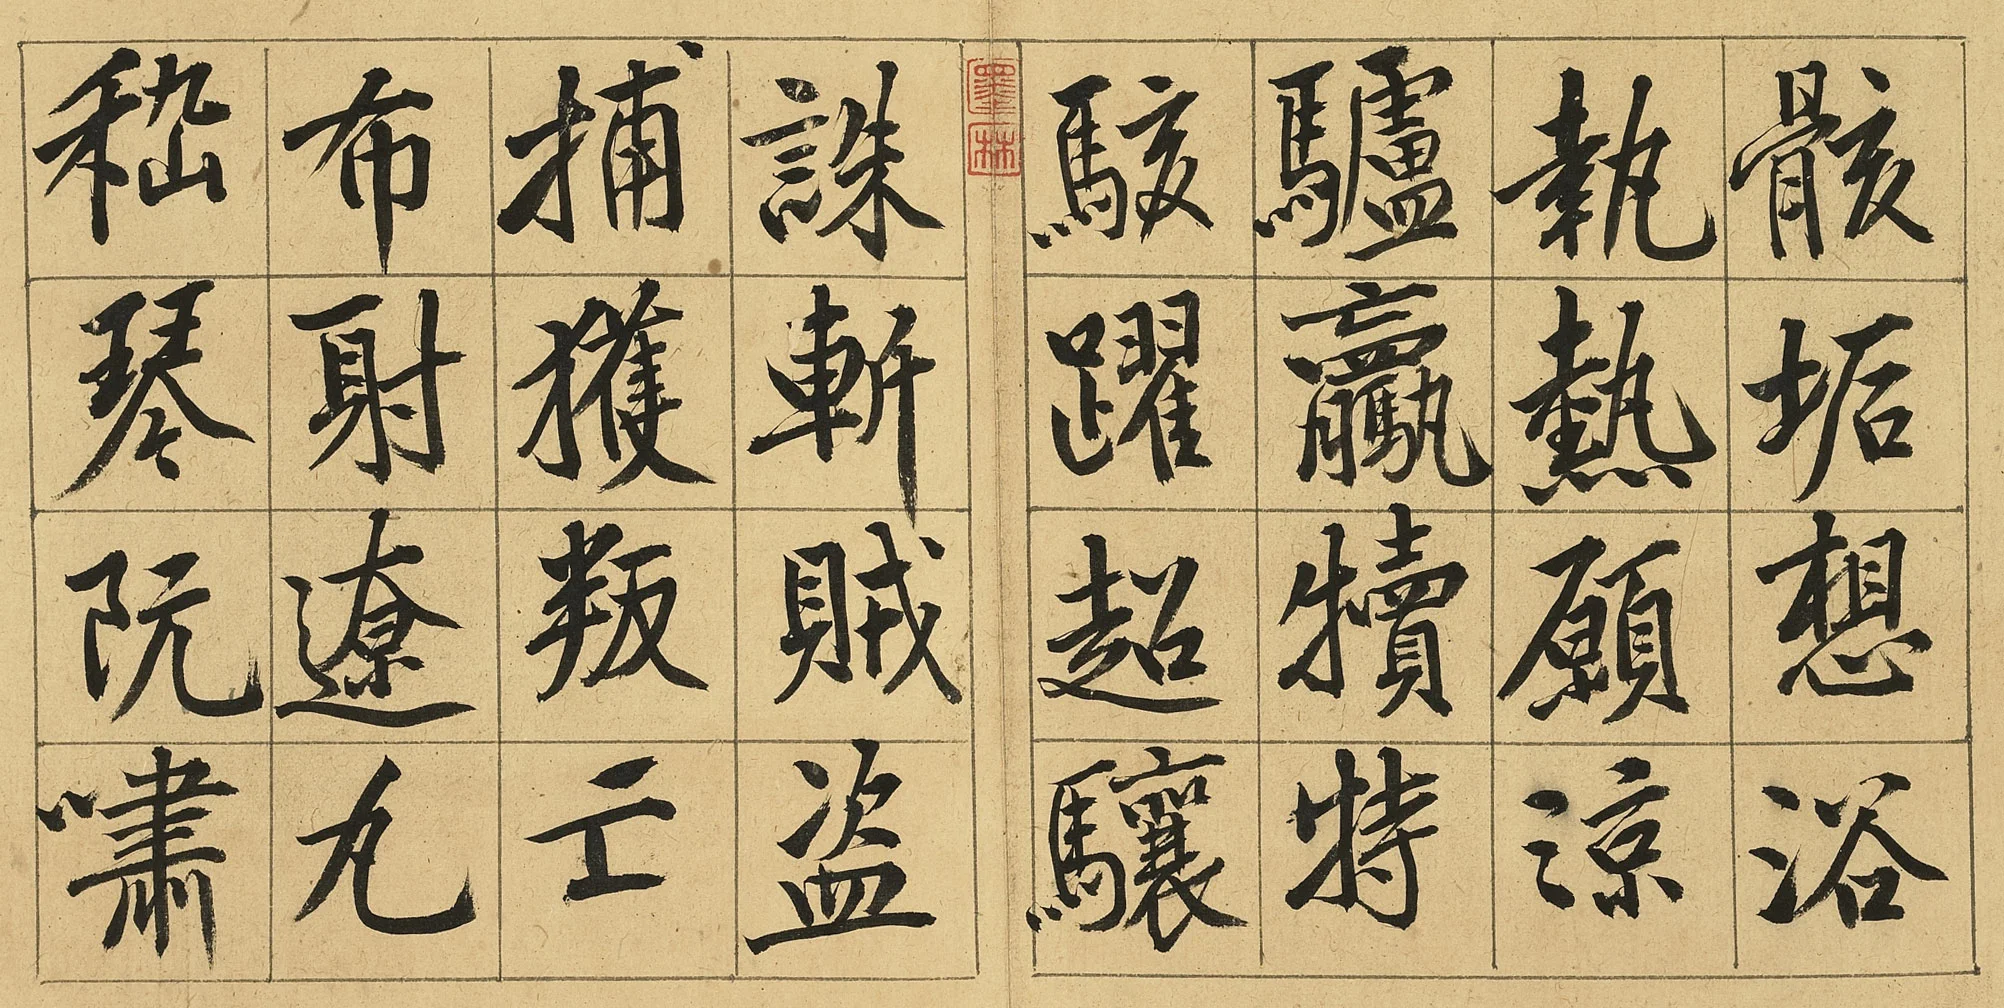 骸垢想浴
執熱願涼
驢騾犢特
駭躍超驤
墨林
誅斬賊盜
捕獲叛亡
布射遼丸
嵇琴阮嘯